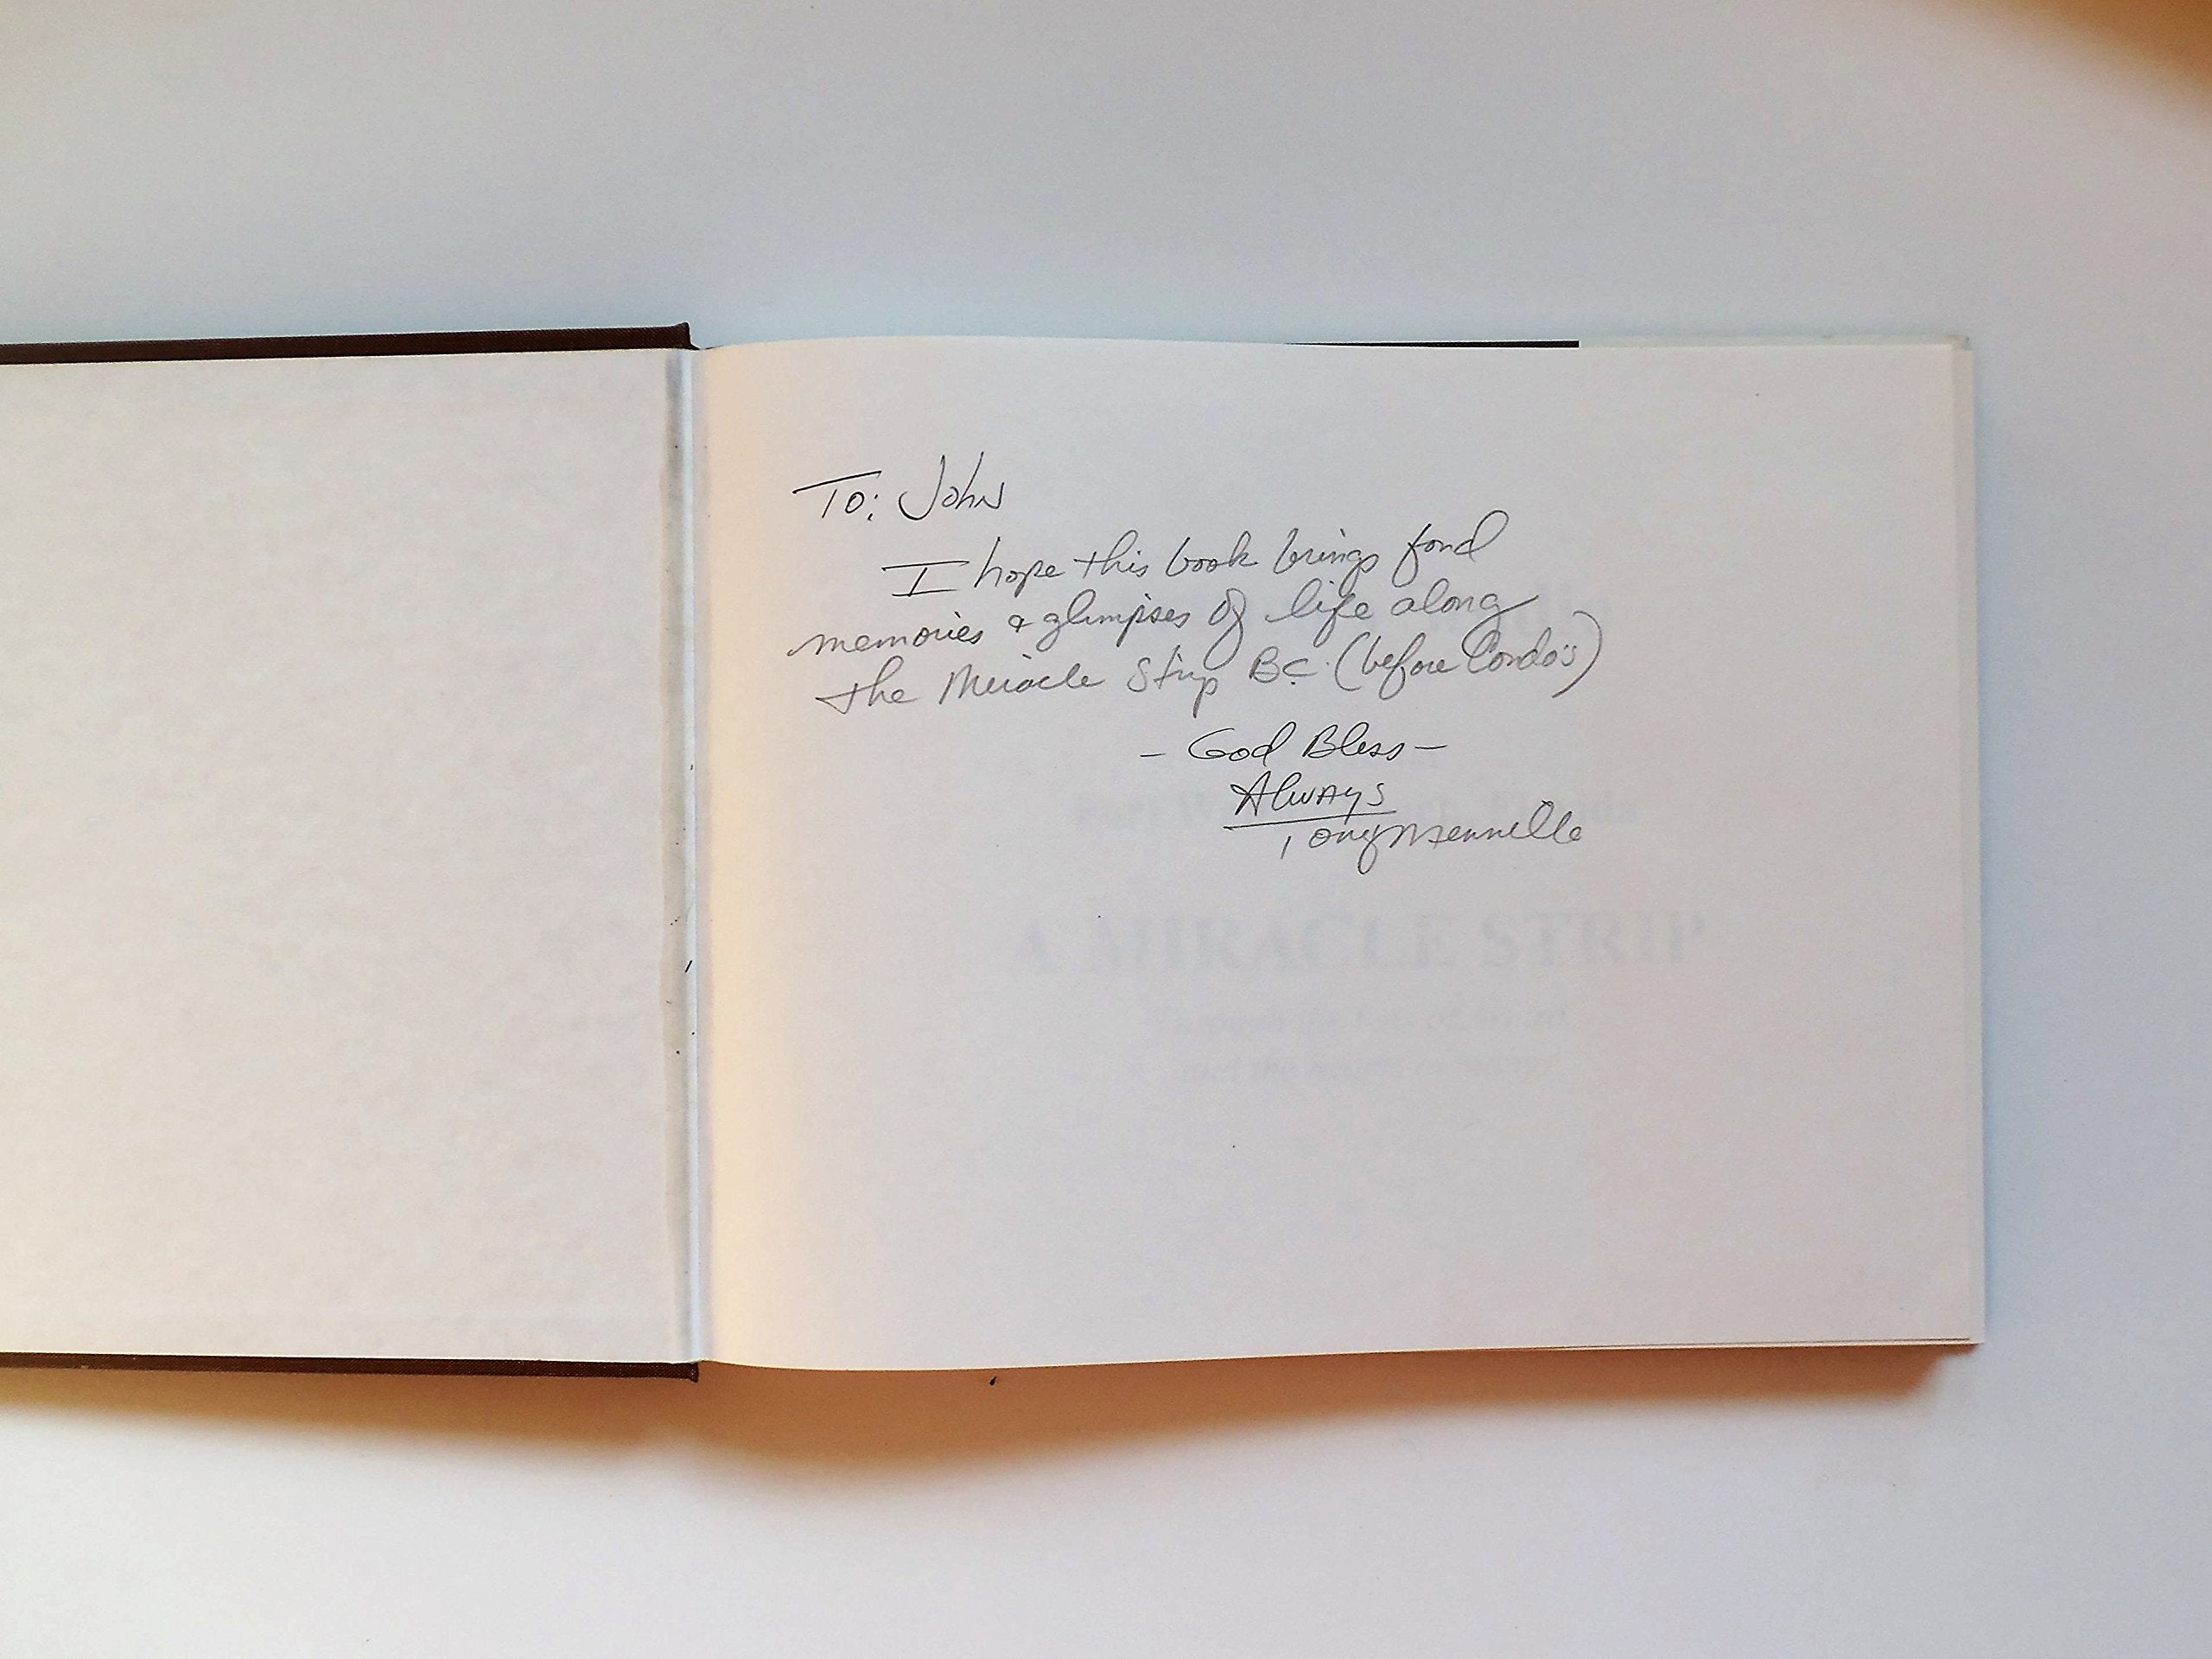 To: John
I hope this book brings fond
memories & glimpses of life along
the Miracle Strip B.C. (before Condo's)
- God Bless -
Always
Tony Mennillo
A MIRACLE STRIP
and the